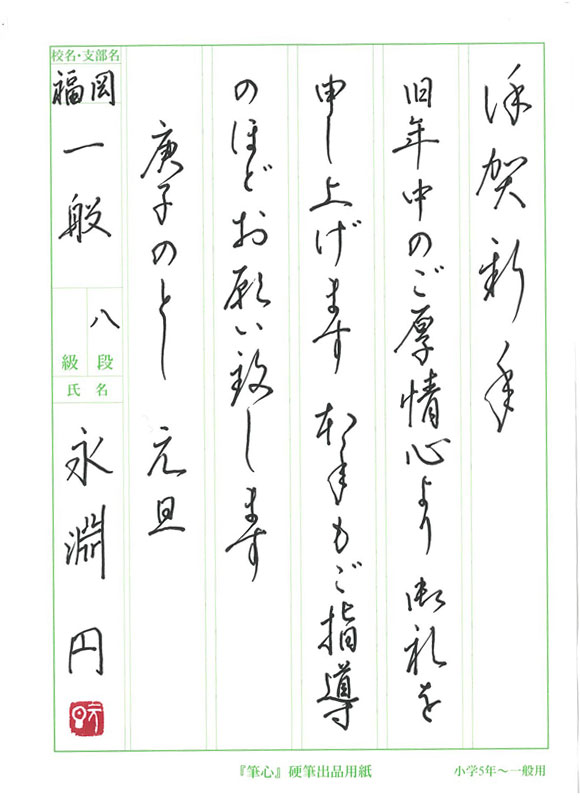 恭賀新年
旧年中のご厚情心より御礼を
申し上げます 本年もご指導
のほどお願い致します
庚子のとし 元旦
校名・支部名
福岡
一般
八段
級
氏名
永淵 円
『筆心』硬筆出品用紙
小学5年〜一般用